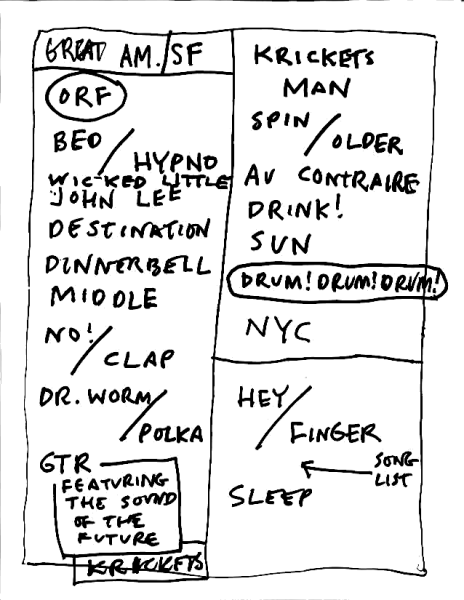 GREAT AM./SF
ORF
BED/
HYPNO
WICKED LITTLE
JOHN LEE
DESTINATION
DINNERBELL
MIDDLE
NO!/
CLAP
DR. WORM/
POLKA
GTR
FEATURING
THE SOUND
OF THE
FUTURE
KRICKETS
KRICKETS
MAN
SPIN/
OLDER
AU CONTRAIRE
DRINK!
SUN
DRUM! DRUM! DRUM!
NYC
HEY/
FINGER
SONG
LIST
SLEEP